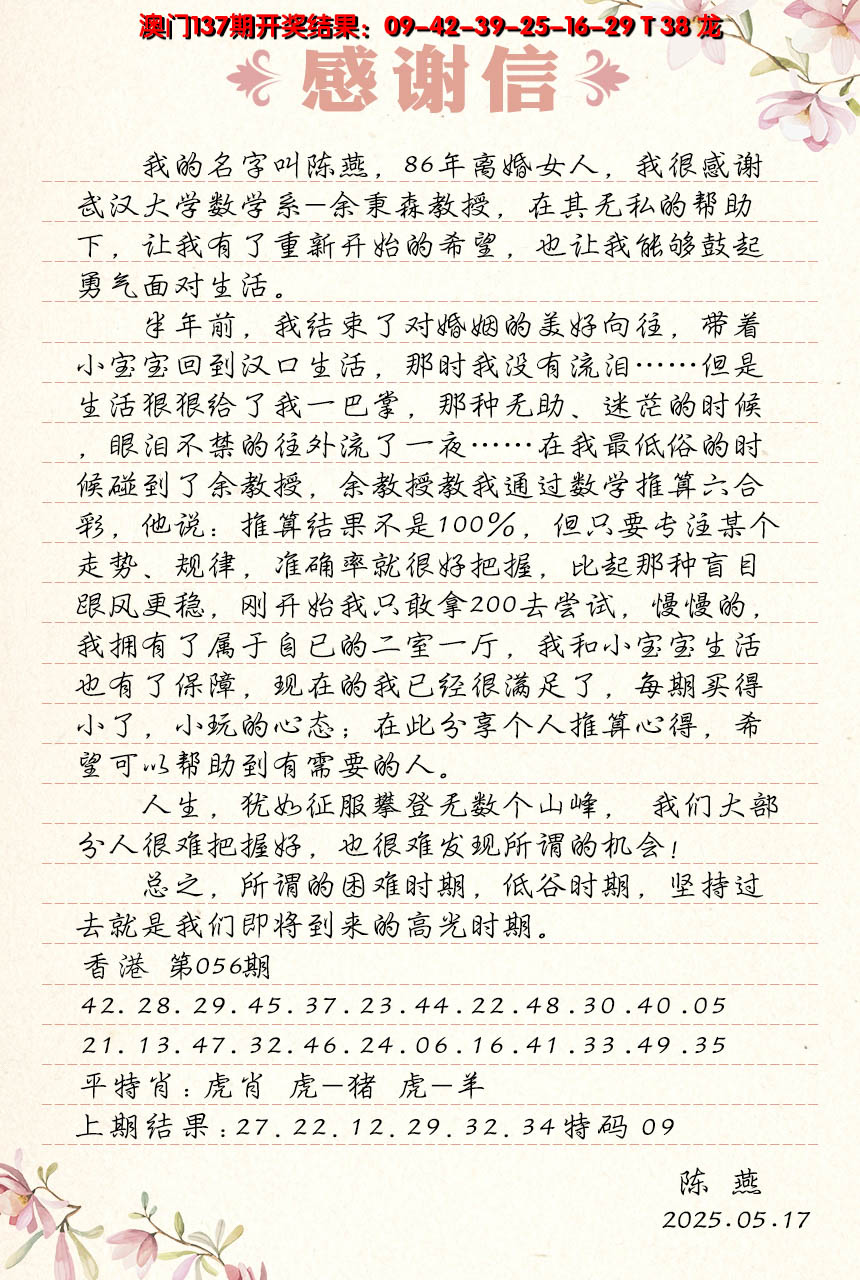 澳门137期开奖结果：09-42-39-25-16-29 T 38 龙
感谢信
我的名字叫陈燕，86年离婚女人，我很感谢
武汉大学数学系-余秉森教授，在其无私的帮助
下，让我有了重新开始的希望，也让我能够鼓起
勇气面对生活。
半年前，我结束了对婚姻的美好向往，带着
小宝宝回到汉口生活，那时我没有流泪……但是
生活狠狠给了我一巴掌，那种无助、迷茫的时候
，眼泪不禁的往外流了一夜……在我最低俗的时
候碰到了余教授，余教授教我通过数学推算六合
彩，他说：推算结果不是100%，但只要专注某个
走势、规律，准确率就很好把握，比起那种盲目
跟风更稳，刚开始我只敢拿200去尝试，慢慢的，
我拥有了属于自已的二室一厅，我和小宝宝生活
也有了保障，现在的我已经很满足了，每期买得
小了，小玩的心态；在此分享个人推算心得，希
望可以帮助到有需要的人。
人生，犹如征服攀登无数个山峰， 我们大部
分人很难把握好，也很难发现所谓的机会！
总之，所谓的困难时期，低谷时期，坚持过
去就是我们即将到来的高光时期。
香港 第056期
42.28.29.45.37.23.44.22.48.30.40.05
21.13.47.32.46.24.06.16.41.33.49.35
平特肖：虎肖 虎-猪 虎-羊
上期结果：27.22.12.29.32.34特码 09
陈 燕
2025.05.17